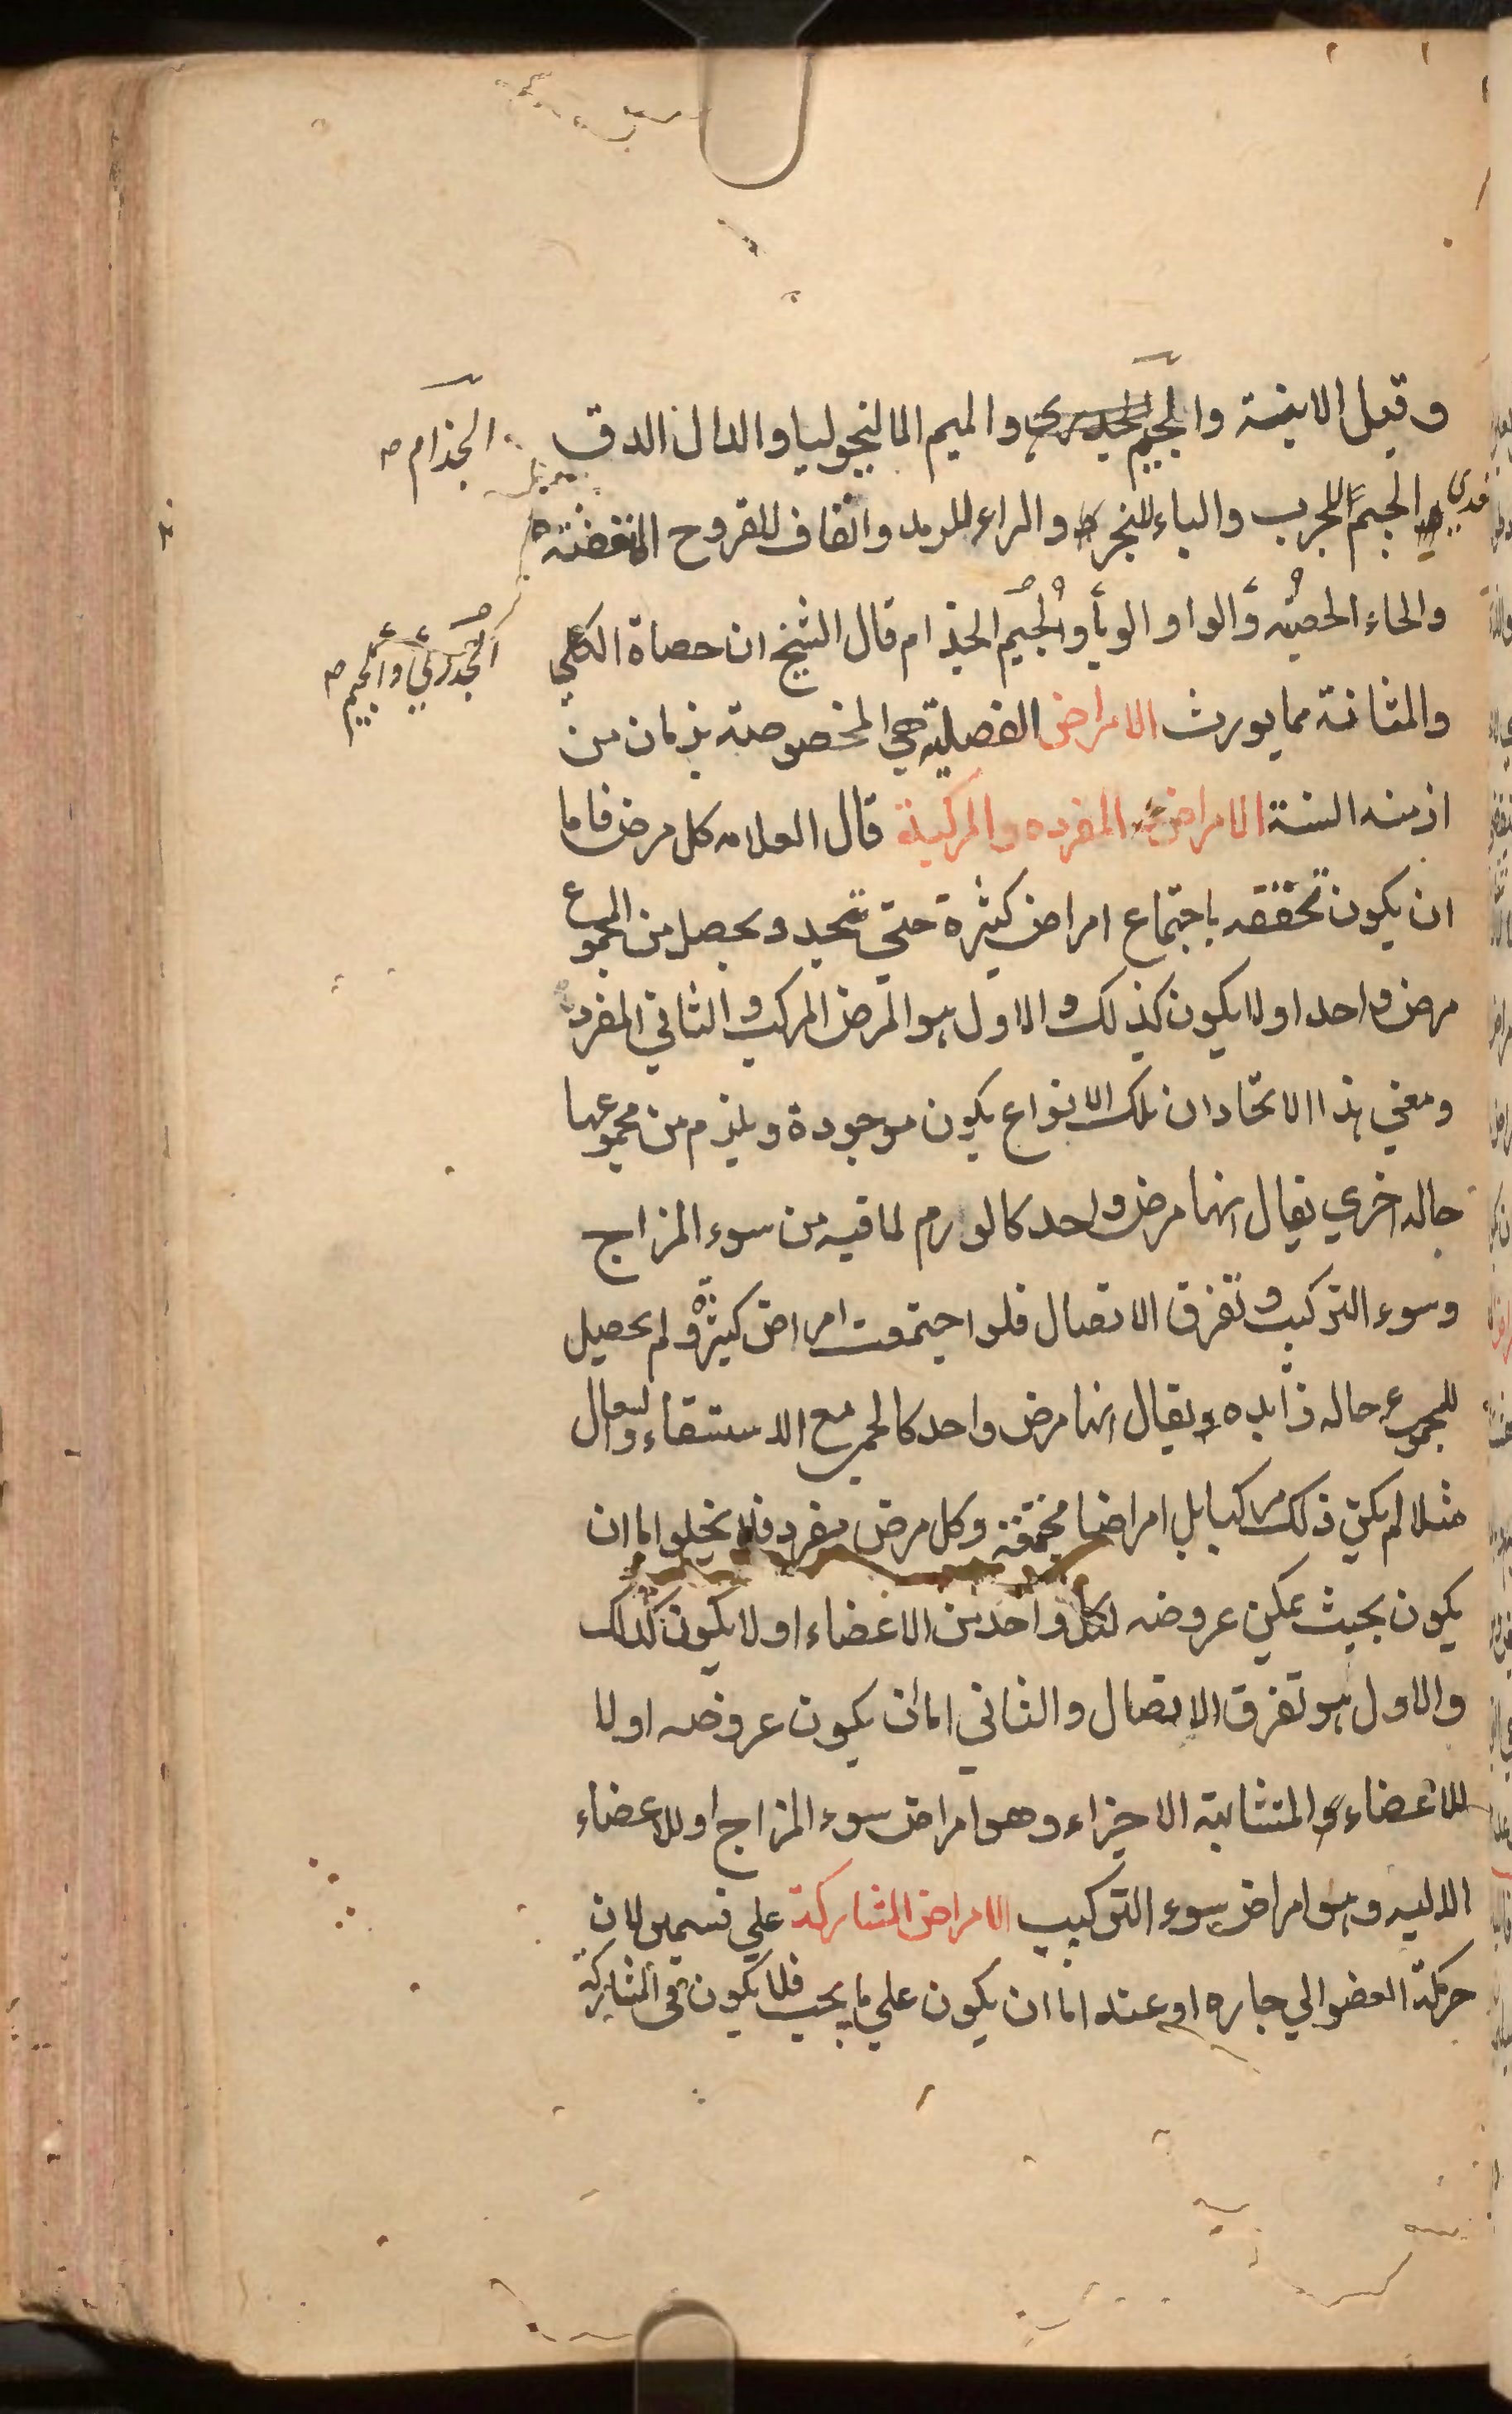 وقيل الابنة والجيم الجدري والميم المالنيخوليا والدال الدق
الجذام صح
الجيم للجرب والباء للبخر والراء للرمد والقاف للقروح المتعفنة
والحاء الحصبه والواو الوبأ والجيم الجذام قال الشيخ ان حصاة الكلي
الجدري والجيم صح
والمثانة مما يورث الامراض الفصلية هي المخصوصة بزمان من
ازمنه السنة الامراض المفرده والمركبة قال العلامه كل مرض فاما
ان يكون تحققه باجتماع امراض كثيرة حتي تتحد ويحصل من المجموع
مرض واحد اولا يكون كذلك والاول هو المرض المركب والثاني المفرد
ومعني هذا الاتحاد ان تلك الانواع يكون موجودة ويلزم من مجموعها
حاله اخري يقال انها مرض واحد كالورم لما فيه من سوء المزاج
وسوء التركيب وتفرق الاتصال فلو اجتمعت امراض كثيرة ولم يحصل
للمجموع حاله زايده ويقال انها مرض واحد كالحمي مع الاستسقاء والسعال
مثلا لم يكن ذلك مركبا بل امراضا مجتمعة وكل مرض مفرد فلا يخلوا اما ان
يكون بحيث يمكن عروضه لكل واحد من الاعضاء اولا يكون كذلك
والاول هو تفرق الاتصال والثاني اما ان يكون عروضه اولا
للاعضاء المتشابهة الاجزاء وهو امراض سوء المزاج او للاعضاء
الاليه وهو امراض سوء التركيب الامراض المشاركة علي قسمين لان
حركة العضو الي جاره او عنه اما ان يكون علي ما يجب فلا يكون في المشاركة